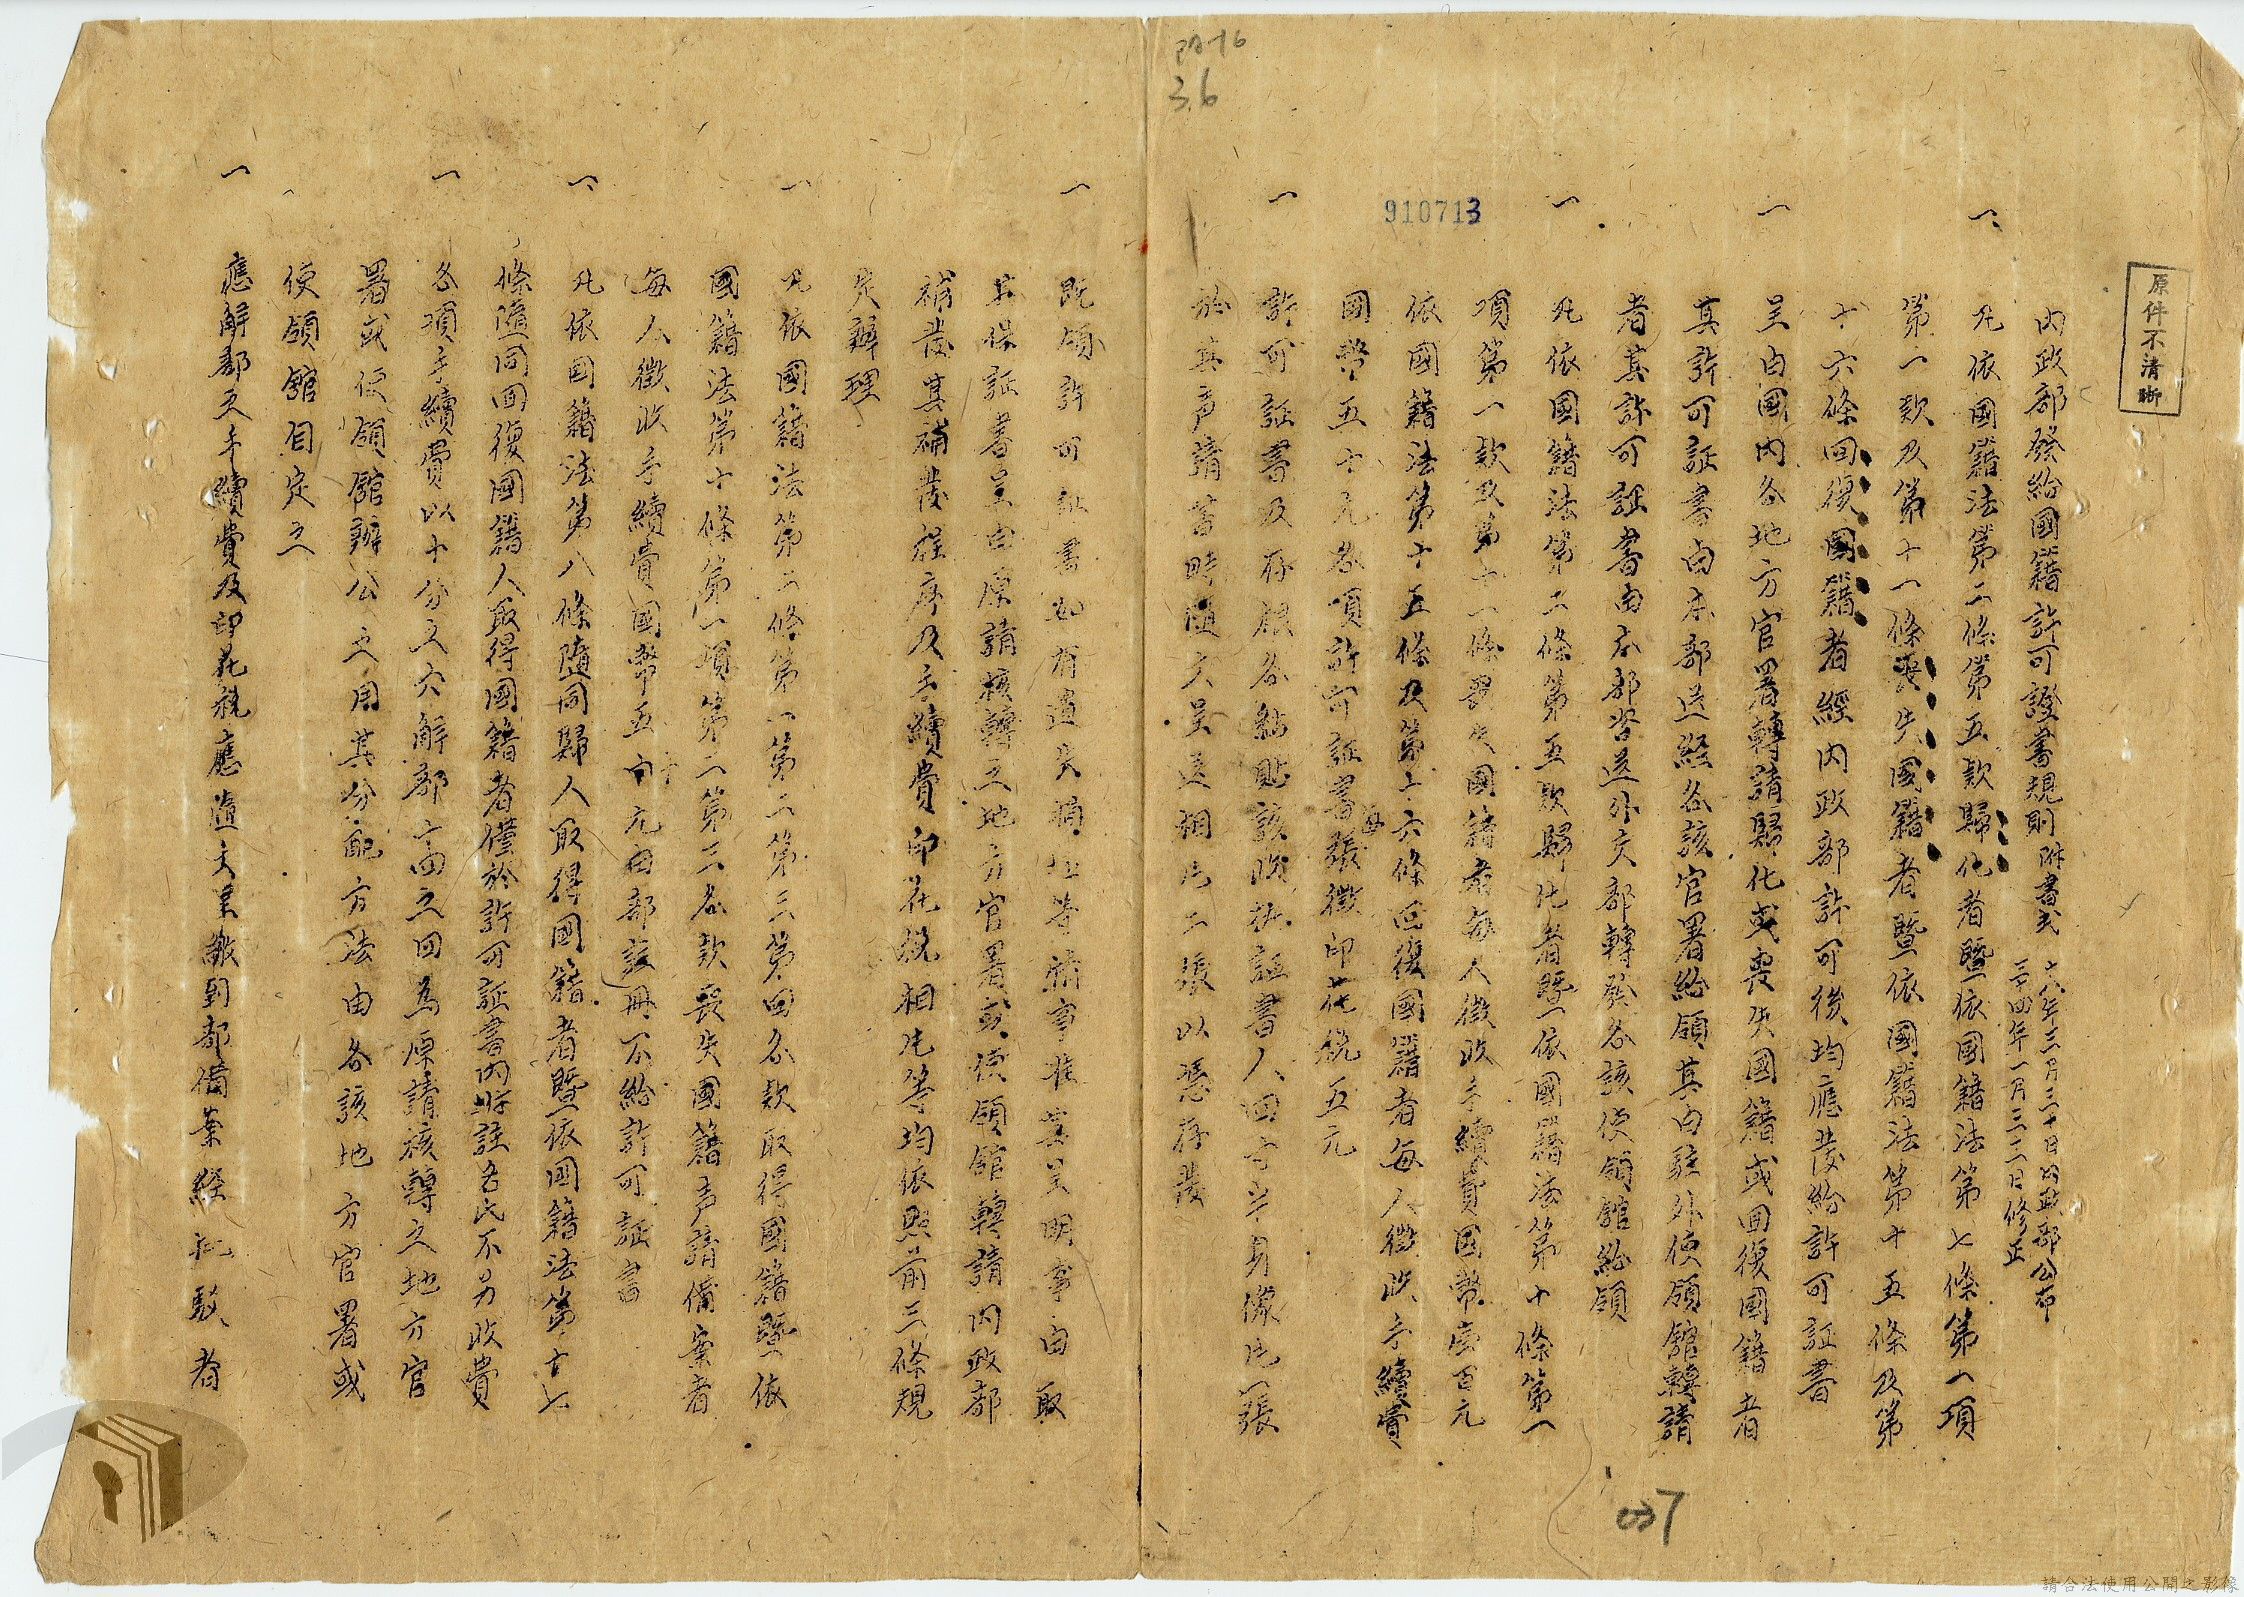 原件不清晰
內政部發給國籍許可證書規則附書式
十八年三月三十日內政部公布
三十四年一月三十一日修正
一、凡依國籍法第二條第五款歸化者暨依國籍法第七條第一項
第一款及第十一條喪失國籍者暨依國籍法第十五條及第
十六條回復國籍者經內政部許可後均應發給許可証書
一 呈由國內各地方官署轉請歸化或喪失國籍或回復國籍者
其許可証書由本部送經各該官署給領其由駐外使領館轉請
者其許可証書由本部咨送外交部轉發各該使領館給領
一 凡依國籍法第二條第五款歸化者暨依國籍法第十條第一
項第一款及第十一條喪失國籍者每人徵收手續費國幣壹百元
依國籍法第十五條及第十六條回復國籍者每人徵收手續費
國幣五十元各項許可証書每張徵印花稅五元
一 許可証書及存根各粘貼該收執証書人四寸半身像片一張
於其声請書時隨文呈送相片二張以憑存發
一 既領許可証書如有遺失損壞等情事准其呈明事由取
具保証書呈由原請核轉之地方官署或使領館轉請內政部
補發其補發程序及手續費印花稅相片等均依照前三條規
定辦理
一 凡依國籍法第二條第一第二第三第四各款取得國籍暨依
國籍法第十條第一項第二第三各款喪失國籍声請備案者
每人徵收手續費國幣五十元由部註冊不給許可証書
一 凡依國籍法第八條隨同歸人取得國籍者暨依國籍法第十七
條隨同回復國籍人取得國籍者僅於許可証書內附註名氏不另收費
一 各項手續費以十分之六解部十分之四為原請核轉之地方官
署或使領館辦公之用其分配方法由各該地方官署或
使領館自定之
一 應解部之手續費及印花稅應隨文呈繳到部備案經批駁者
910713
PA-16
3.6
037
請合法使用公開之影像